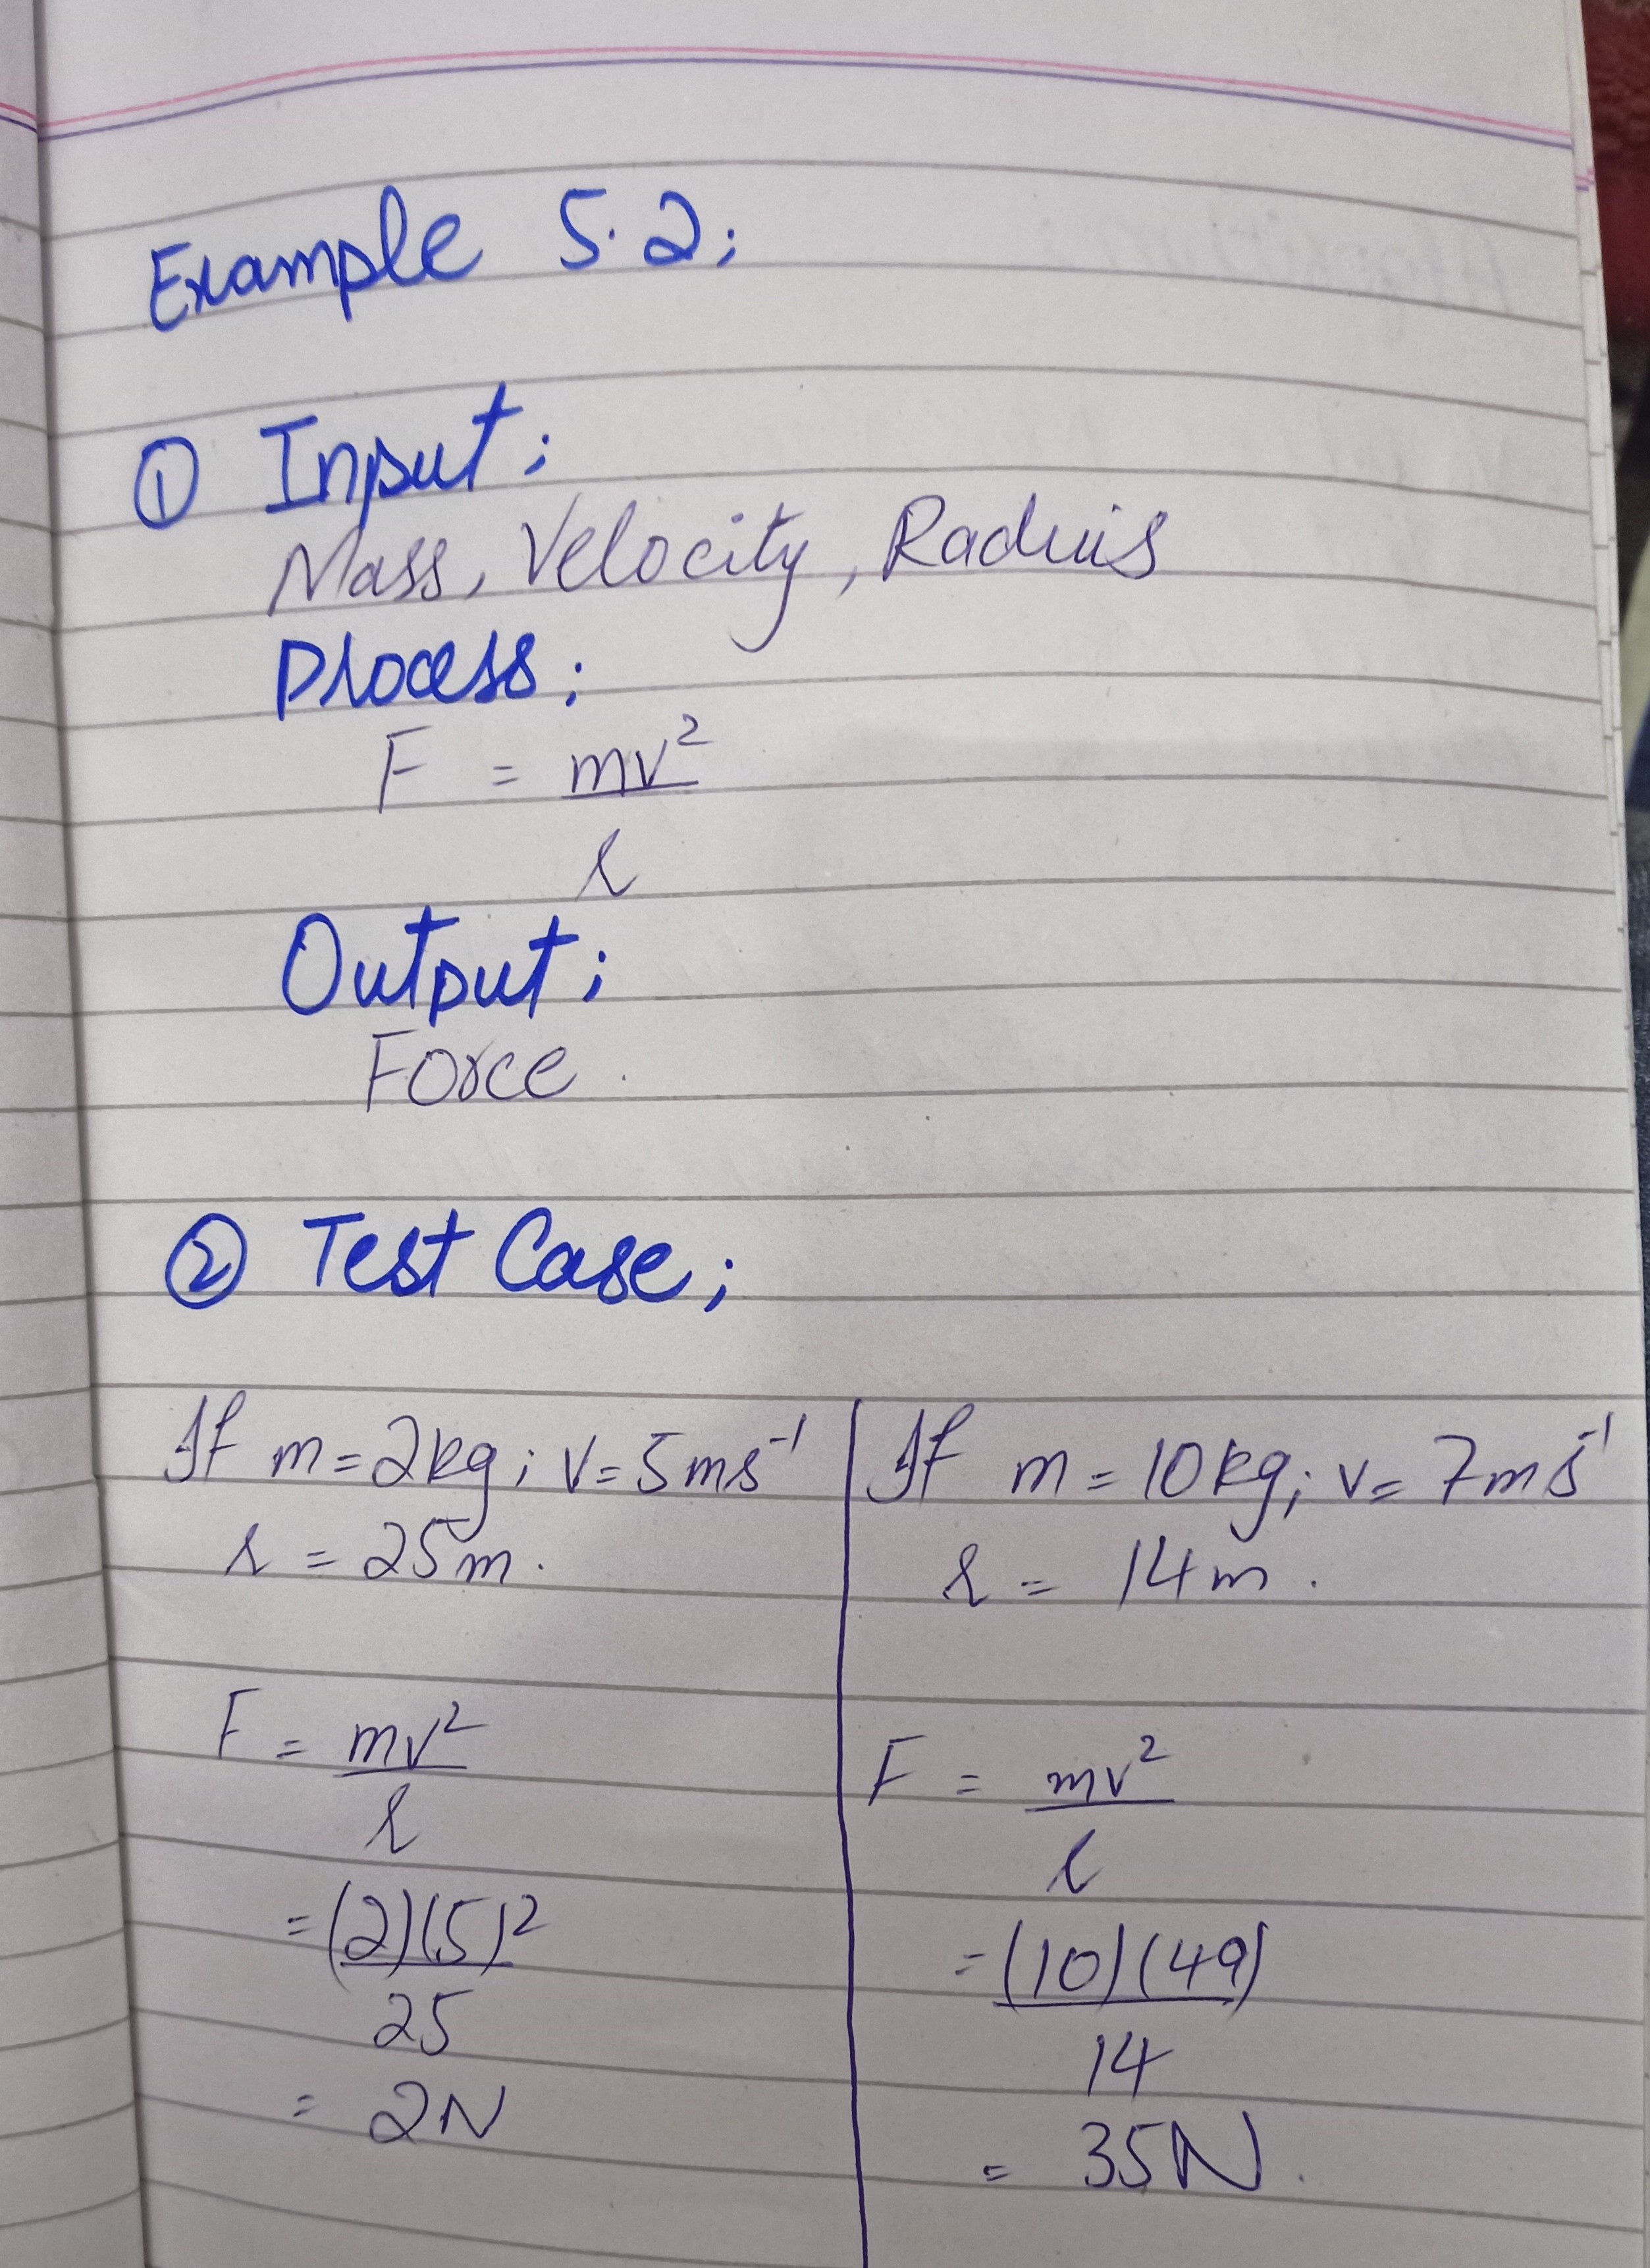 Example 5.2;
① Input;
Mass, Velocity, Radius
Process;
F = mv²
r
Output;
Force.
② Test Case;
If m = 2kg; v = 5ms⁻¹
r = 25m.
F = mv²
r
= (2)(5)²
25
= 2N
If m = 10kg; v = 7ms⁻¹
r = 14m.
F = mv²
r
= (10)(49)
14
= 35N.